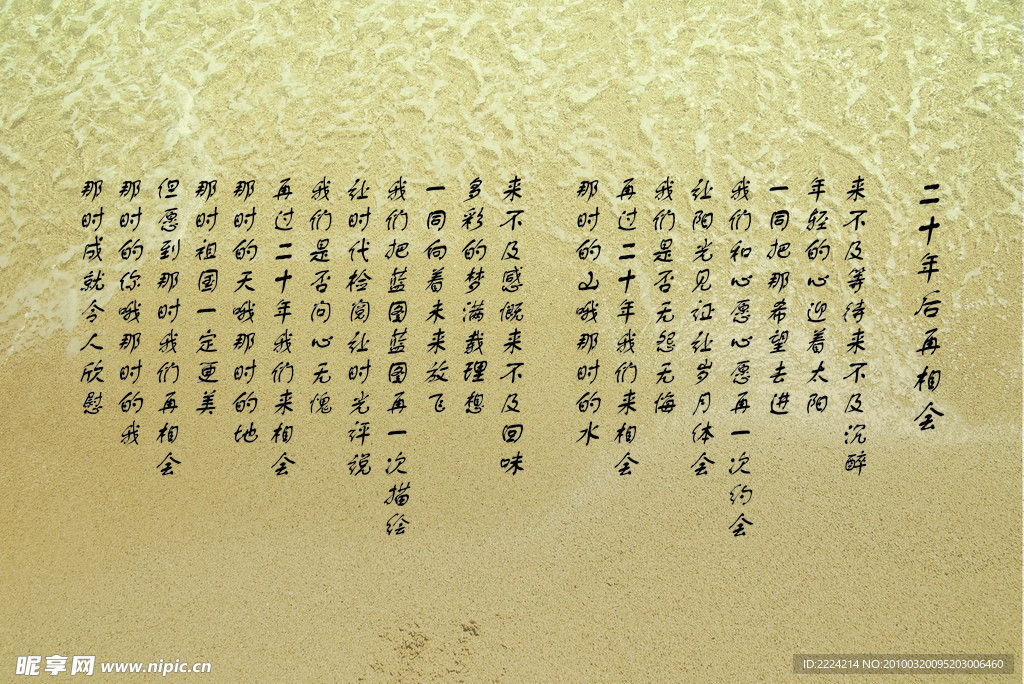 二十年后再相会
来不及等待来不及沉醉
年轻的心迎着太阳
一同把那希望去进
我们和心愿心愿再一次约会
让阳光见证让岁月体会
我们是否无怨无悔
再过二十年我们来相会
那时的山哦那时的水
来不及感慨来不及回味
多彩的梦满载理想
一同向着未来放飞
我们把蓝图蓝图再一次描绘
让时代检阅让时光评说
我们是否问心无愧
再过二十年我们来相会
那时的天哦那时的地
那时祖国一定更美
但愿到那时我们再相会
那时的你哦那时的我
那时成就令人欣慰
昵享网 www.nipic.cn
ID:2224214 NO:20100320095203006460